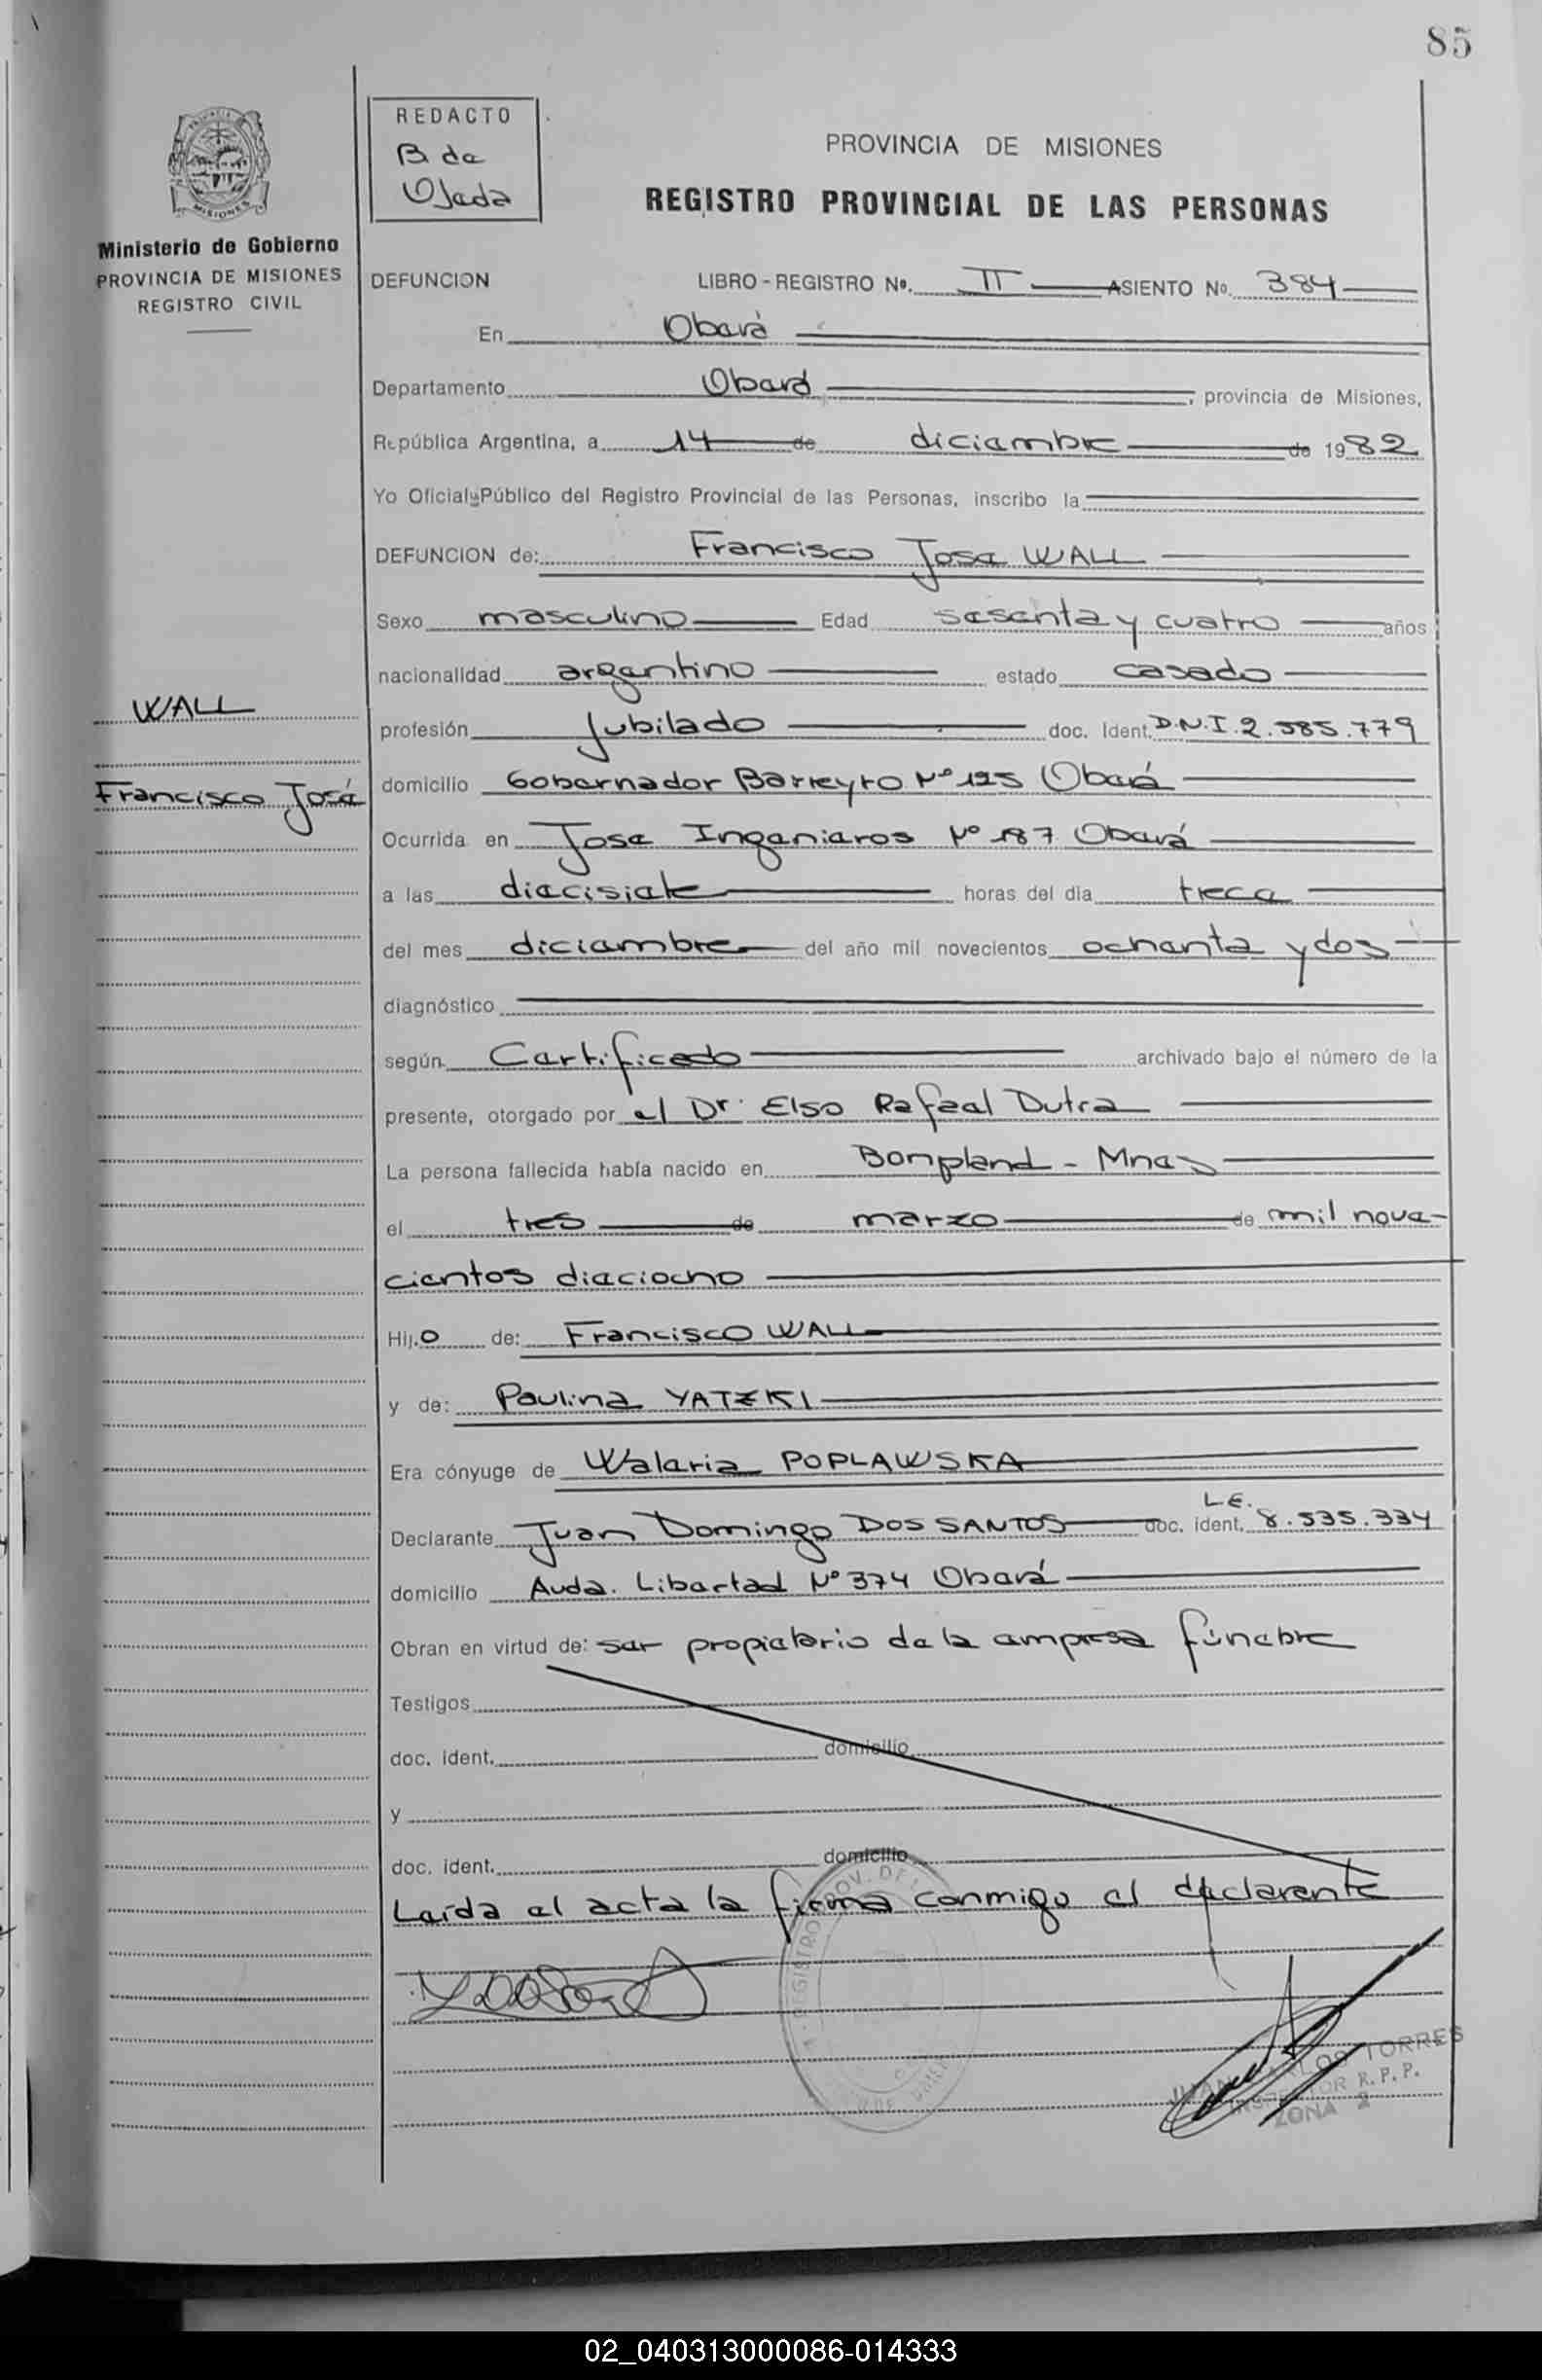 85
REDACTO
B. de
Ojeda
PROVINCIA DE MISIONES
REGISTRO PROVINCIAL DE LAS PERSONAS
MISIONES
Ministerio de Gobierno
PROVINCIA DE MISIONES
REGISTRO CIVIL
DEFUNCION LIBRO - REGISTRO Nº. II ASIENTO Nº. 384
En Oberá
Departamento Oberá, provincia de Misiones,
República Argentina, a 14 de diciembre de 1982
Yo Oficial Público del Registro Provincial de las Personas, inscribo la
DEFUNCION de: Francisco Jose WALL
Sexo masculino Edad sesenta y cuatro años
nacionalidad argentino estado casado
WALL
profesión Jubilado doc. Ident. D.N.I. 2.585.779
Francisco José
domicilio Gobernador Barreyro Nº 125 Oberá
Ocurrida en Jose Ingenieros Nº 187 Oberá
a las diecisiete horas del día trece
del mes diciembre del año mil novecientos ochenta y dos
diagnóstico
según Certificado archivado bajo el número de la
presente, otorgado por el Dr. Elso Rafael Dutra
La persona fallecida había nacido en Bompland - Mnes
el tres de marzo de mil nove-
cientos dieciocho
Hijo de: Francisco WALL
y de: Paulina YATZKI
Era cónyuge de Waleria POPLAWSKA
Declarante Juan Domingo DOS SANTOS doc. ident. L.E. 8.535.334
domicilio Avda. Libertad Nº 374 Oberá
Obran en virtud de: ser propietario de la empresa fúnebre
Testigos
doc. ident. domicilio
y
doc. ident. domicilio
Leída el acta la firma conmigo el declarente
TORRES
R. P. P.
ZONA 2
02_040313000086-014333